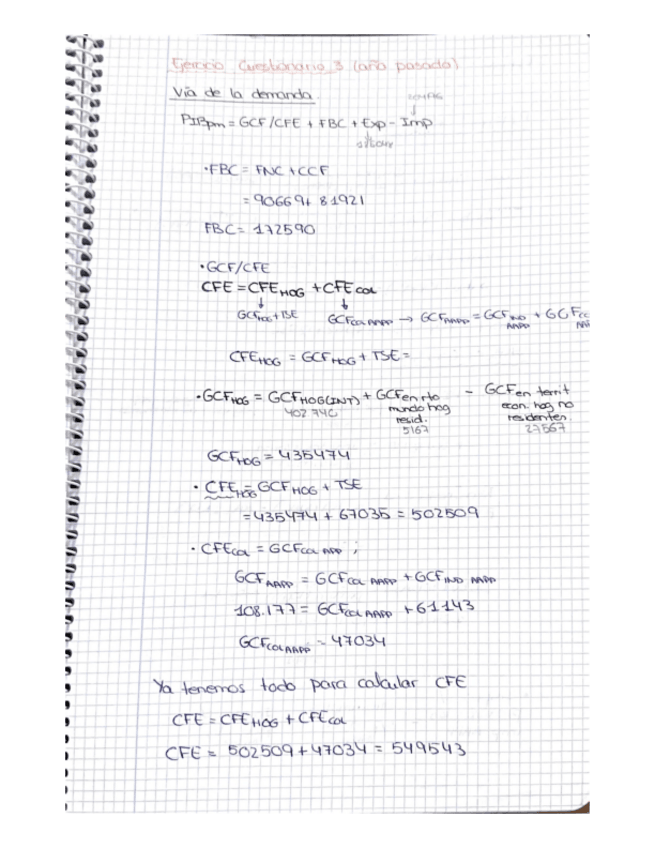 Ejercicio Cuestionario 3 (año pasado)
Vía de la demanda
PIBpm = GCF/CFE + FBC + Exp - Imp
• FBC = FNC + CCF
= 90669 + 81921
FBC = 172590
• GCF/CFE
CFE = CFE HOG + CFE COL
GCF HOG + TSE GCF COL AAPP → GCF AAPP = GCF IND AAPP + GCF
CFE HOG = GCF HOG + TSE =
• GCF HOG = GCF HOG(INT) + GCF en rto mundo hog resid. - GCF en territ econ. hog no residenten.
5167 27567
GCF HOG = 435474
• CFE HOG = GCF HOG + TSE
= 435474 + 67035 = 502509
• CFE COL = GCF COL APP ;
GCF AAPP = GCF COL AAPP + GCF IND AAPP
108.177 = GCF COL AAPP + 61143
GCF COL AAPP = 47034
Ya tenemos todo para calcular CFE
CFE = CFE HOG + CFE COL
CFE = 502509 + 47034 = 549543